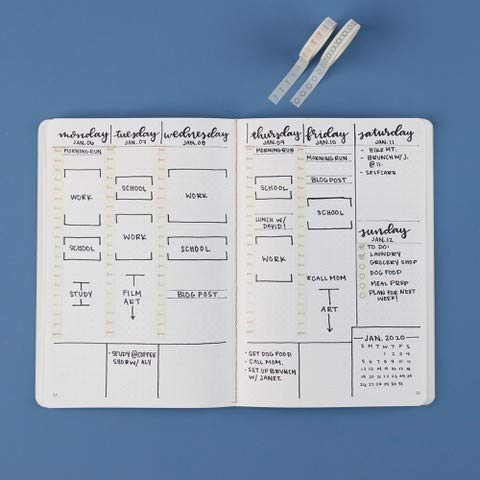 monday
JAN. 06
MORNING RUN
WORK
SCHOOL
STUDY
tuesday
JAN. 07
SCHOOL
WORK
FILM
ART
- STUDY @COFFEE
SHOP W/ ALY
wednesday
JAN. 08
WORK
SCHOOL
BLOG POST
thursday
JAN. 09
MORNING RUN
SCHOOL
LUNCH W/
DAVID!
WORK
- GET DOG FOOD
- CALL MOM.
- SET UP BRUNCH
W/ JANET.
friday
JAN. 10
MORNING RUN
BLOG POST
SCHOOL
CALL MOM
ART
saturday
JAN. 11
- HIKE MT.
- BRUNCH W/ J.
@ 11.
- SELFCARE
sunday
JAN. 12
TO DO:
LAUNDRY
GROCERY SHOP
DOG FOOD
MEAL PREP
PLAN FOR NEXT
WEEK!
JAN. 2020
S M T W T F S
1 2 3 4
5 6 7 8 9 10 11
12 13 14 15 16 17 18
19 20 21 22 23 24 25
26 27 28 29 30 31